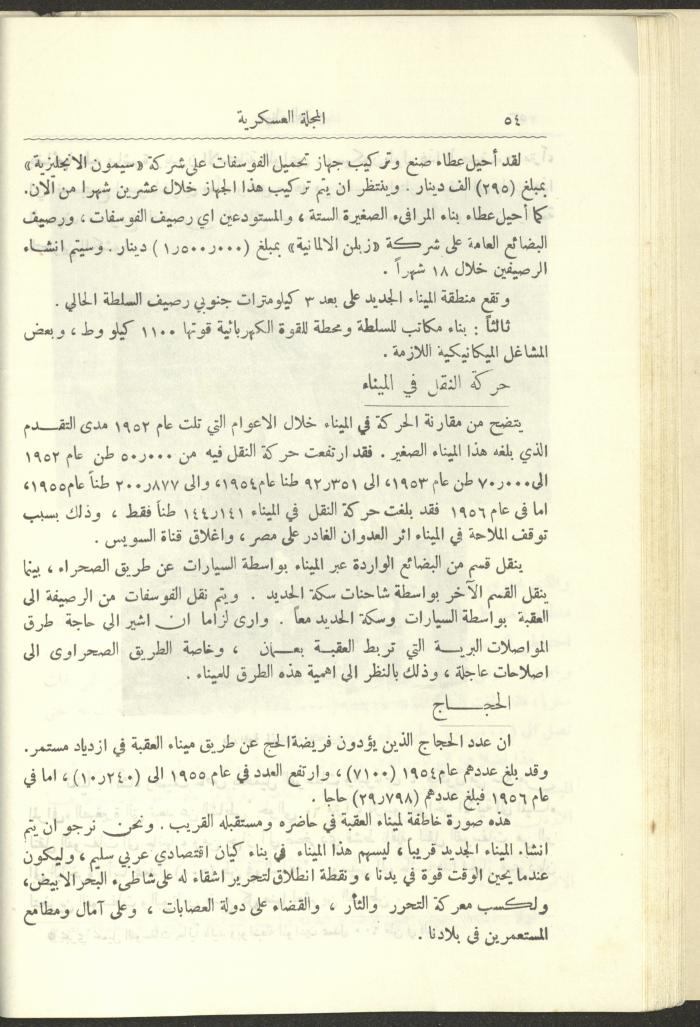 ٥٤
المجلة العسكرية
لقد أحيل عطاء صنع وتركيب جهاز تحميل الفوسفات على شركة «سيمون الانجليزية»
بمبلغ (٢٩٥) الف دينار . وينتظر ان يتم تركيب هذا الجهاز خلال عشرين شهرا من آلان.
كما أحيل عطاء بناء المرافىء الصغيرة الستة ، والمستودعين اي رصيف الفوسفات ، ورصيف
البضائع العامة على شركة «زبلن الالمانية» بمبلغ (٠٠٠ر٥٠٠ر١) دينار . وسيتم انشاء
الرصيفين خلال ١٨ شهراً .
و تقع منطقة الميناء الجديد على بعد ٣ كيلومترات جنوبي رصيف السلطة الحالي .
ثالثاً : بناء مكاتب للسلطة ومحطة للقوة الكهربائية قوتها ١١٠٠ كيلو وط ، وبعض
المشاغل الميكانيكية اللازمة .
حركة النقل في الميناء
يتضح من مقارنة الحركة في الميناء خلال الاعوام التي تلت عام ١٩٥٢ مدى التقدم
الذي بلغه هذا الميناء الصغير . فقد ارتفعت حركة النقل فيه من ٠٠٠ر٥٠ طن عام ١٩٥٢
الى ٠٠٠ر٧٠ طن عام ١٩٥٣، الى ٣٥١ر٩٢ طنا عام ١٩٥٤، والى ٨٧٧ر٢٠٠ طناً عام ١٩٥٥،
اما في عام ١٩٥٦ فقد بلغت حركة النقل في الميناء ١٤١ر١٤٤ طناً فقط ، وذلك بسبب
توقف الملاحة في الميناء اثر العدوان الغادر على مصر ، واغلاق قناة السويس .
ينقل قسم من البضائع الواردة عبر الميناء بواسطة السيارات عن طريق الصحراء ، بينما
ينقل القسم الآخر بواسطة شاحنات سكة الحديد . ويتم نقل الفوسفات من الرصيفة الى
العقبة بواسطة السيارات وسكة الحديد معاً . وارى لزاما ان اشير الى حاجة طرق
المواصلات البرية التي تربط العقبة بعمان ، وخاصة الطريق الصحراوى الى
اصلاحات عاجلة ، وذلك بالنظر الى اهمية هذه الطرق للميناء .
الحجاج
ان عدد الحجاج الذين يؤدون فريضة الحج عن طريق ميناء العقبة في ازدياد مستمر.
وقد بلغ عددهم عام ١٩٥٤ (٧١٠٠) ، وارتفع العدد في عام ١٩٥٥ الى (٢٤٠ر١٠) ، اما في
عام ١٩٥٦ فبلغ عددهم (٧٩٨ر٢٩) حاجا .
هذه صورة خاطفة لميناء العقبة في حاضره ومستقبله القريب . ونحن نرجو ان يتم
انشاء الميناء الجديد قريباً ، ليسهم هذا الميناء في بناء كيان اقتصادي عربي سليم ، وليكون
عندما يحين الوقت قوة في يدنا ، ونقطة انطلاق لتحرير اشقاء له على شاطىء البحر الابيض،
ولكسب معركة التحرر والثأر ، والقضاء على دولة العصابات ، وعلى آمال ومطامع
المستعمرين في بلادنا .